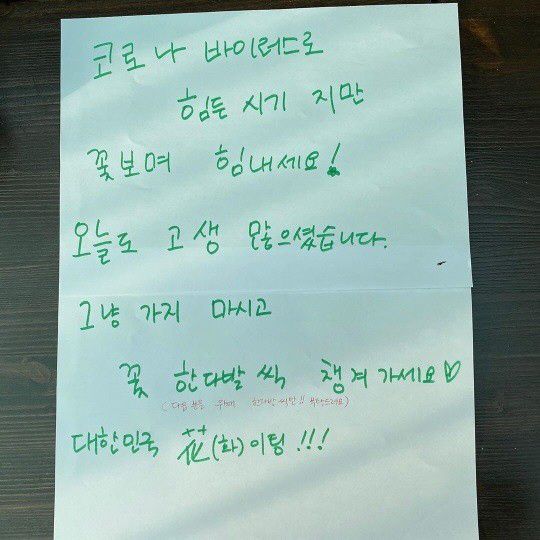 코로나 바이러스로
힘든 시기 지만
꽃보며 힘내세요!
오늘도 고생 많으셨습니다.
그냥 가지 마시고
꽃 한다발 씩 챙겨 가세요♡
(다음 분을 위해 한다발 씩만!! 부탁드려요)
대한민국 花(화)이팅!!!